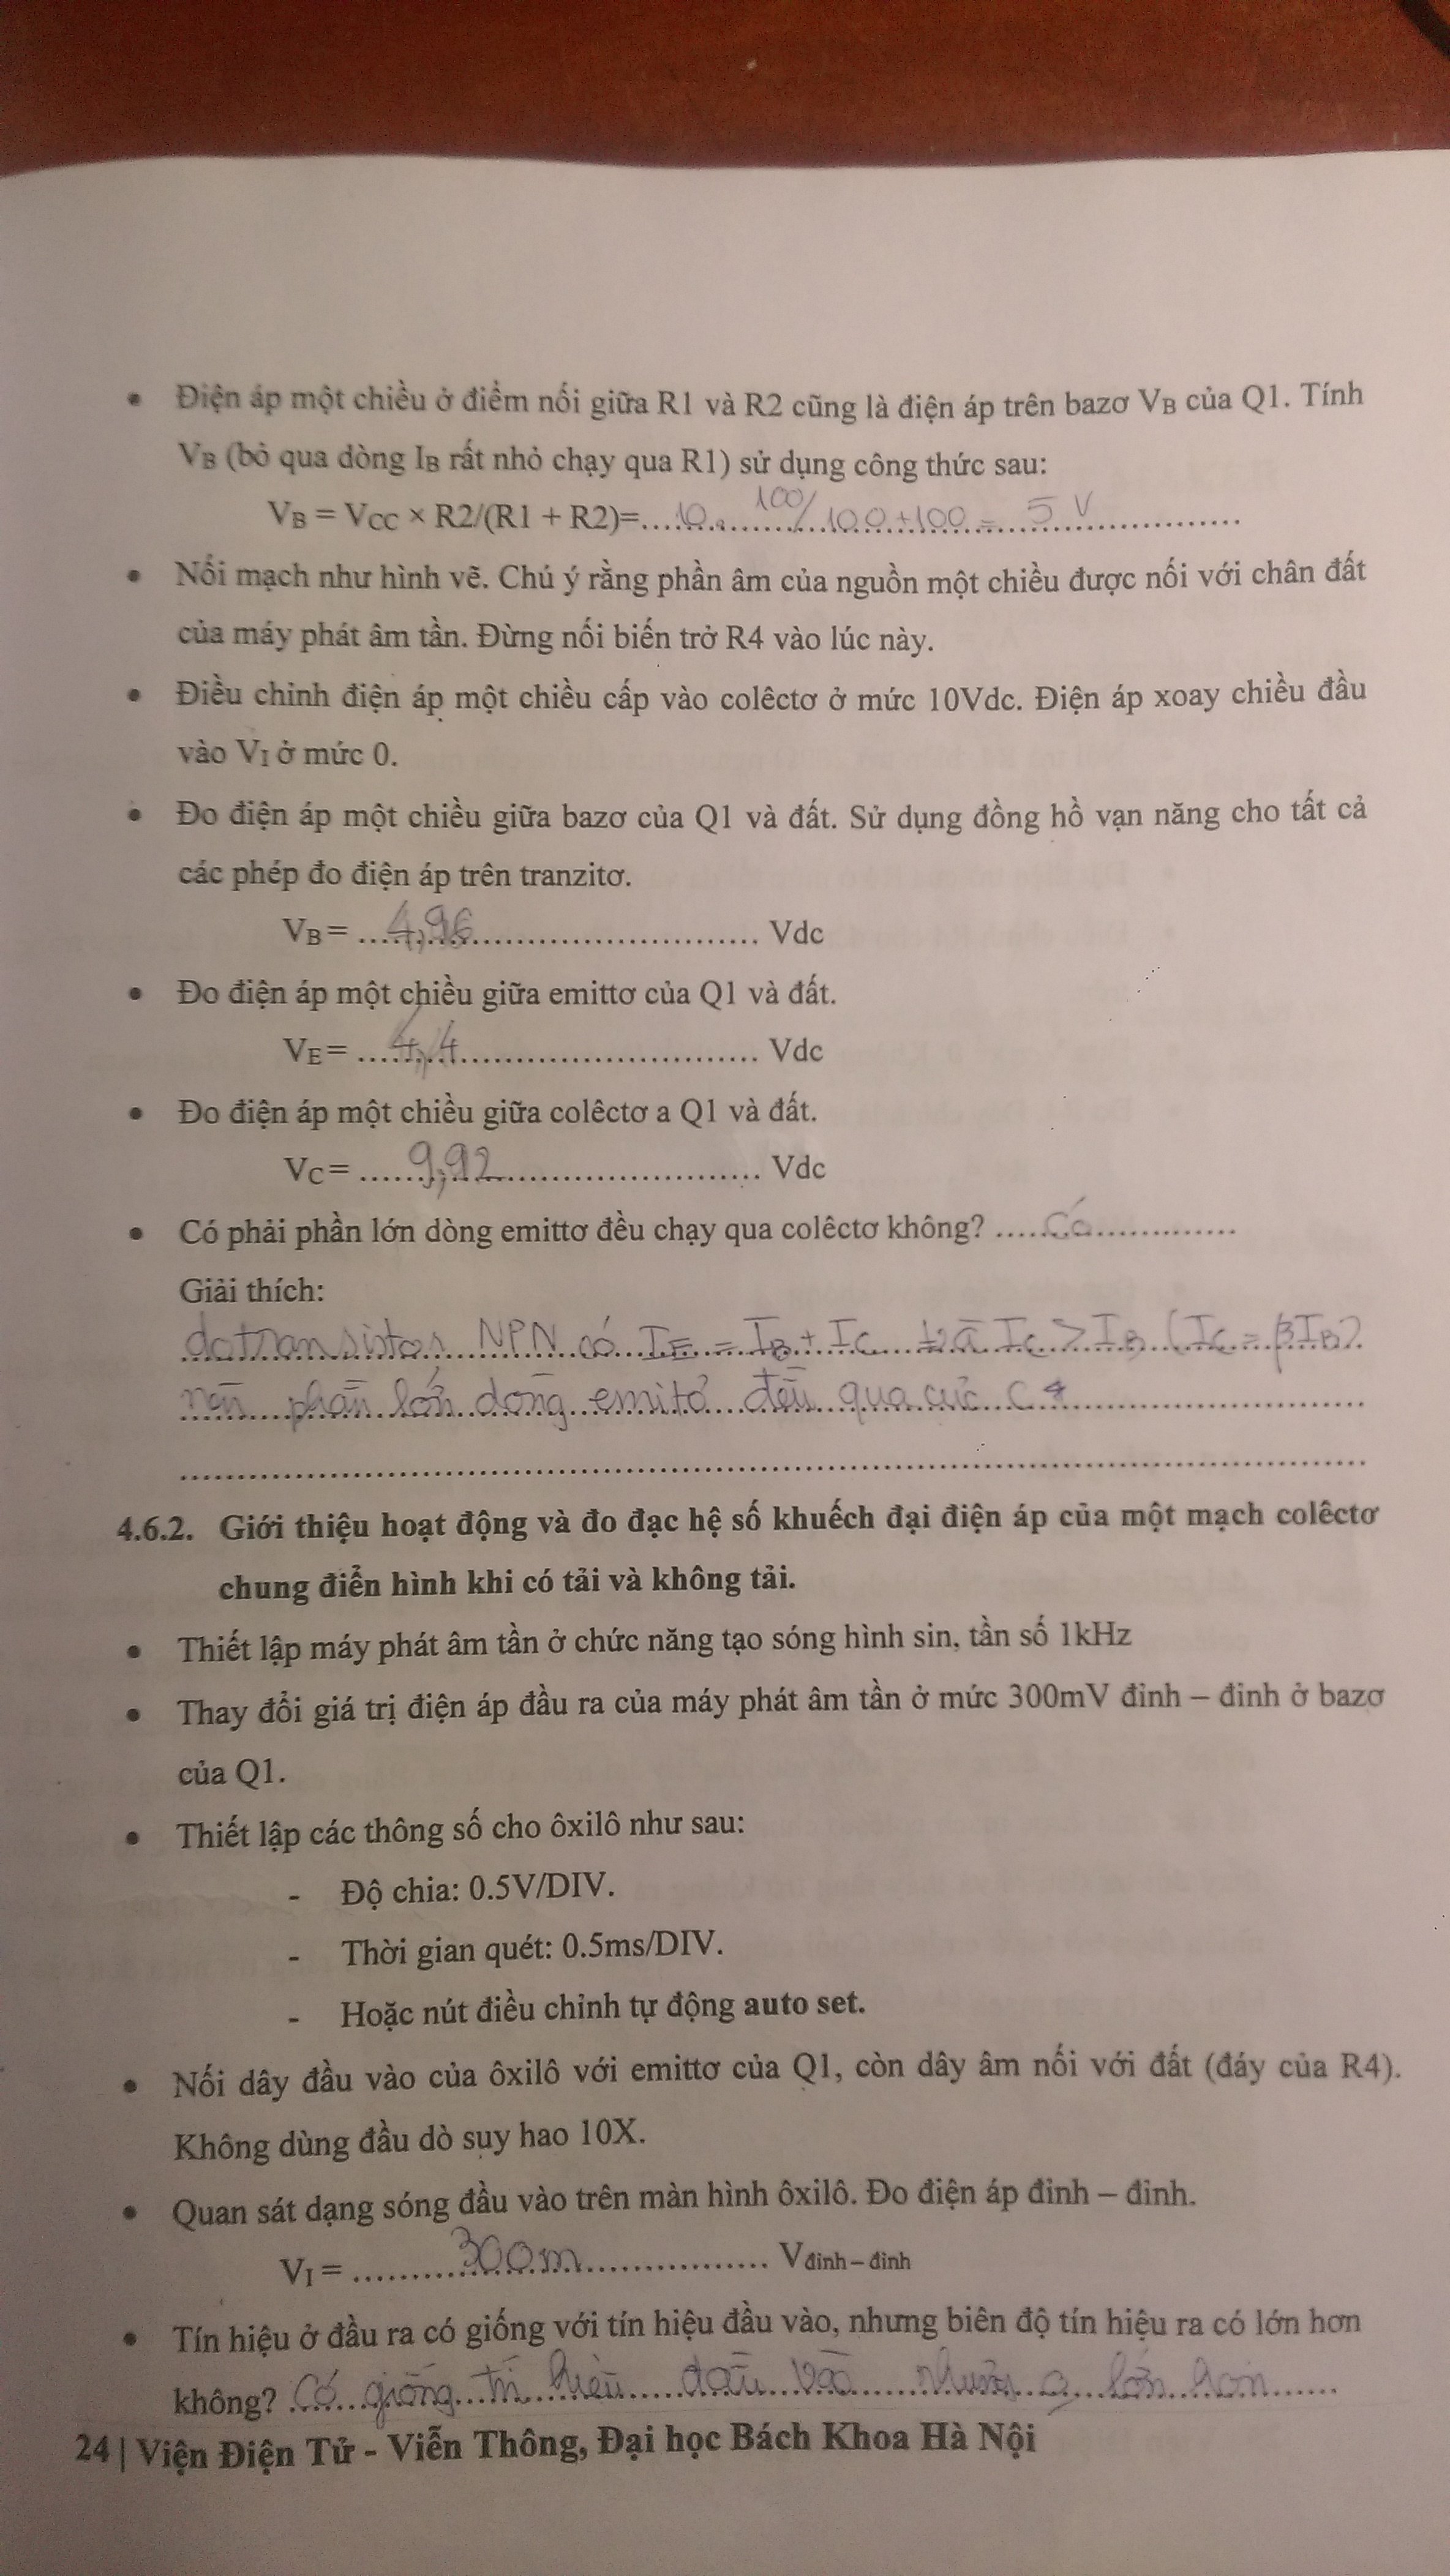 • Điện áp một chiều ở điểm nối giữa R1 và R2 cũng là điện áp trên bazơ VB của Q1. Tính
VB (bỏ qua dòng IB rất nhỏ chạy qua R1) sử dụng công thức sau:
VB = VCC × R2/(R1 + R2)=....10.....100/100+100 = 5 V..........
• Nối mạch như hình vẽ. Chú ý rằng phần âm của nguồn một chiều được nối với chân đất
của máy phát âm tần. Đừng nối biến trở R4 vào lúc này.
• Điều chỉnh điện áp một chiều cấp vào colêctơ ở mức 10Vdc. Điện áp xoay chiều đầu
vào VI ở mức 0.
• Đo điện áp một chiều giữa bazơ của Q1 và đất. Sử dụng đồng hồ vạn năng cho tất cả
các phép đo điện áp trên tranzitơ.
VB = ....4,96.............................. Vdc
• Đo điện áp một chiều giữa emittơ của Q1 và đất.
VE = ....4,4.............................. Vdc
• Đo điện áp một chiều giữa colêctơ a Q1 và đất.
VC = .....9,92............................ Vdc
• Có phải phần lớn dòng emittơ đều chạy qua colêctơ không? .....Có..............
Giải thích:
do transistor NPN có IE = IB + IC và IC > IB (IC = βIB)
nên phần lớn dòng emitơ đều qua cực C
........................................................................
4.6.2. Giới thiệu hoạt động và đo đạc hệ số khuếch đại điện áp của một mạch colêctơ
chung điển hình khi có tải và không tải.
• Thiết lập máy phát âm tần ở chức năng tạo sóng hình sin, tần số 1kHz
• Thay đổi giá trị điện áp đầu ra của máy phát âm tần ở mức 300mV đỉnh – đỉnh ở bazơ
của Q1.
• Thiết lập các thông số cho ôxilô như sau:
- Độ chia: 0.5V/DIV.
- Thời gian quét: 0.5ms/DIV.
- Hoặc nút điều chỉnh tự động auto set.
• Nối dây đầu vào của ôxilô với emittơ của Q1, còn dây âm nối với đất (đáy của R4).
Không dùng đầu dò suy hao 10X.
• Quan sát dạng sóng đầu vào trên màn hình ôxilô. Đo điện áp đỉnh – đỉnh.
VI = ..........300m.................. Vđỉnh – đỉnh
• Tín hiệu ở đầu ra có giống với tín hiệu đầu vào, nhưng biên độ tín hiệu ra có lớn hơn
không? Có giống tín hiệu đầu vào nhưng lớn hơn
24 | Viện Điện Tử - Viễn Thông, Đại học Bách Khoa Hà Nội